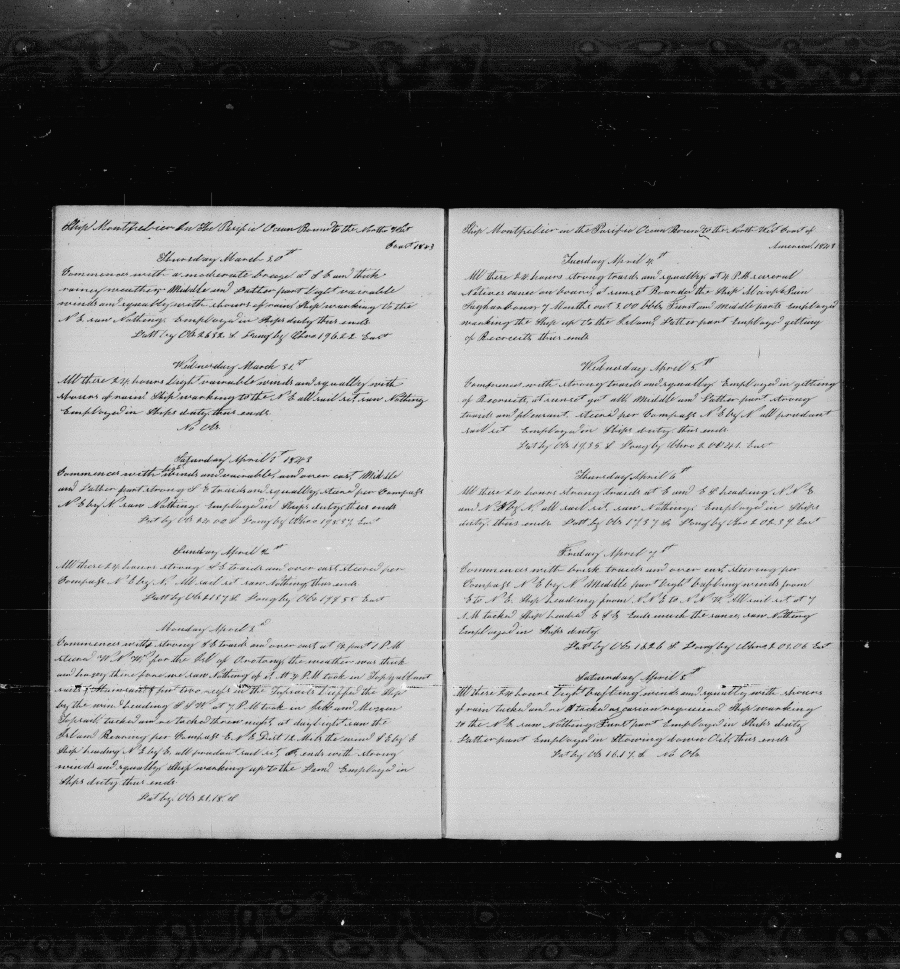 Ship Montpelier In the Pacific Ocean Bound to the North West
Coast 1843
Thursday March 30th
Commences with a moderate breeze at S E and thick
rainy weather Middle and Latter part light vairable
winds and squally with showers of rain Ship working to the
N E saw Nothing Employed in Ships duty thus ends
Latt by Ob 26 52 S Long by Chro 196 22 East
Wednesday March 31st
All these 24 hours light vairable winds and squally with
showers of rain Ship working to the N E all sail set saw Nothing
Employed in Ships duty thus ends
No Obs
Saturday April 1st 1843
Commences with winds and vairable and over cast Middle
and Latter part strong S E trades and squally steerd per Compass
N E by N saw Nothing Employed in Ships duty thus ends
Lat by Ob 24 00 S Long by Chro 198 57 East
Sunday April 2nd
All these 24 hours strong S E trades and over cast steerd per
Compass N E by N. All sail set saw Nothing thus ends
Latt by Ob 21 57 S Long by Obs 199 55 East
Monday April 3d
Commences with strong S E trades and over cast at part 1 P M
steerd W N W for the Isl of Orotong the weather was thick
and heavy there fore see saw Nothing of it. At 4 P M took in Top gallant
sails put two reefs in the Topsails Luffed the Ship
by the wind heading S S W at 7 P M took in Jibb and Mizzen
Topsail tacked and re tacked throu night, at daylight saw the
Island Bearing per Compass E N E Dist 12 Mils the wind S E by E
Ship heading N E by E all prudant sail set, ends with strong
winds and squally ship working up to the Land Employed in
Ships duty thus ends
Lat by Ob 21.18 S
Ship Montpelier in the Pacific Ocean Bound to the North West Coast of
America 1843
Tuesday April 4th
All these 24 hours strong trades and squally at 4 P.M. several
Natives came on board, at sunset Boarded the Ship
7 Months out 200 bbls First and Middle parts employed
working the Ship up to the Island, Latter part Employed getting
of Recruits thus ends
Wednesday April 5th
Commences with strong trades and squally Employed in getting
of Recruits, at sunset got all Middle and Latter part strong
trades and pleasant, steerd per Compass N E by N all prudant
sail set Employed in Ships duty thus ends
Lat by Ob 19.35 S Long by Chro 200 41 East
Thursday April 6th
All these 24 hours strong trades at E and E S heading N N E
and N E by N. all sail set saw Nothing. Employed in Ships
duty. thus ends Latt by Ob 17 37 S Long by Chro 202 39 East
Friday April 7th
Commences with brisk trades and over cast steering per
Compass N E by N Middle part light baffling winds from
E to N E Ship heading from N N E to N N W All sail set at 7
A M tacked Ship headed E S E Ends much the same, saw Nothing
Employed in Ships duty
Lat by Ob 16 26 S Long by Chro 203.06 East
Saturday April 8th
All these 24 hours light baffling winds and squally with showers
of rain tacked and re tacked as occasion requiered Ship working
to the N E saw Nothing First part Employed in Ships duty
Latter part Employed in Stowing down Oil, thus ends
Lat by Ob 16.17 S No Obs